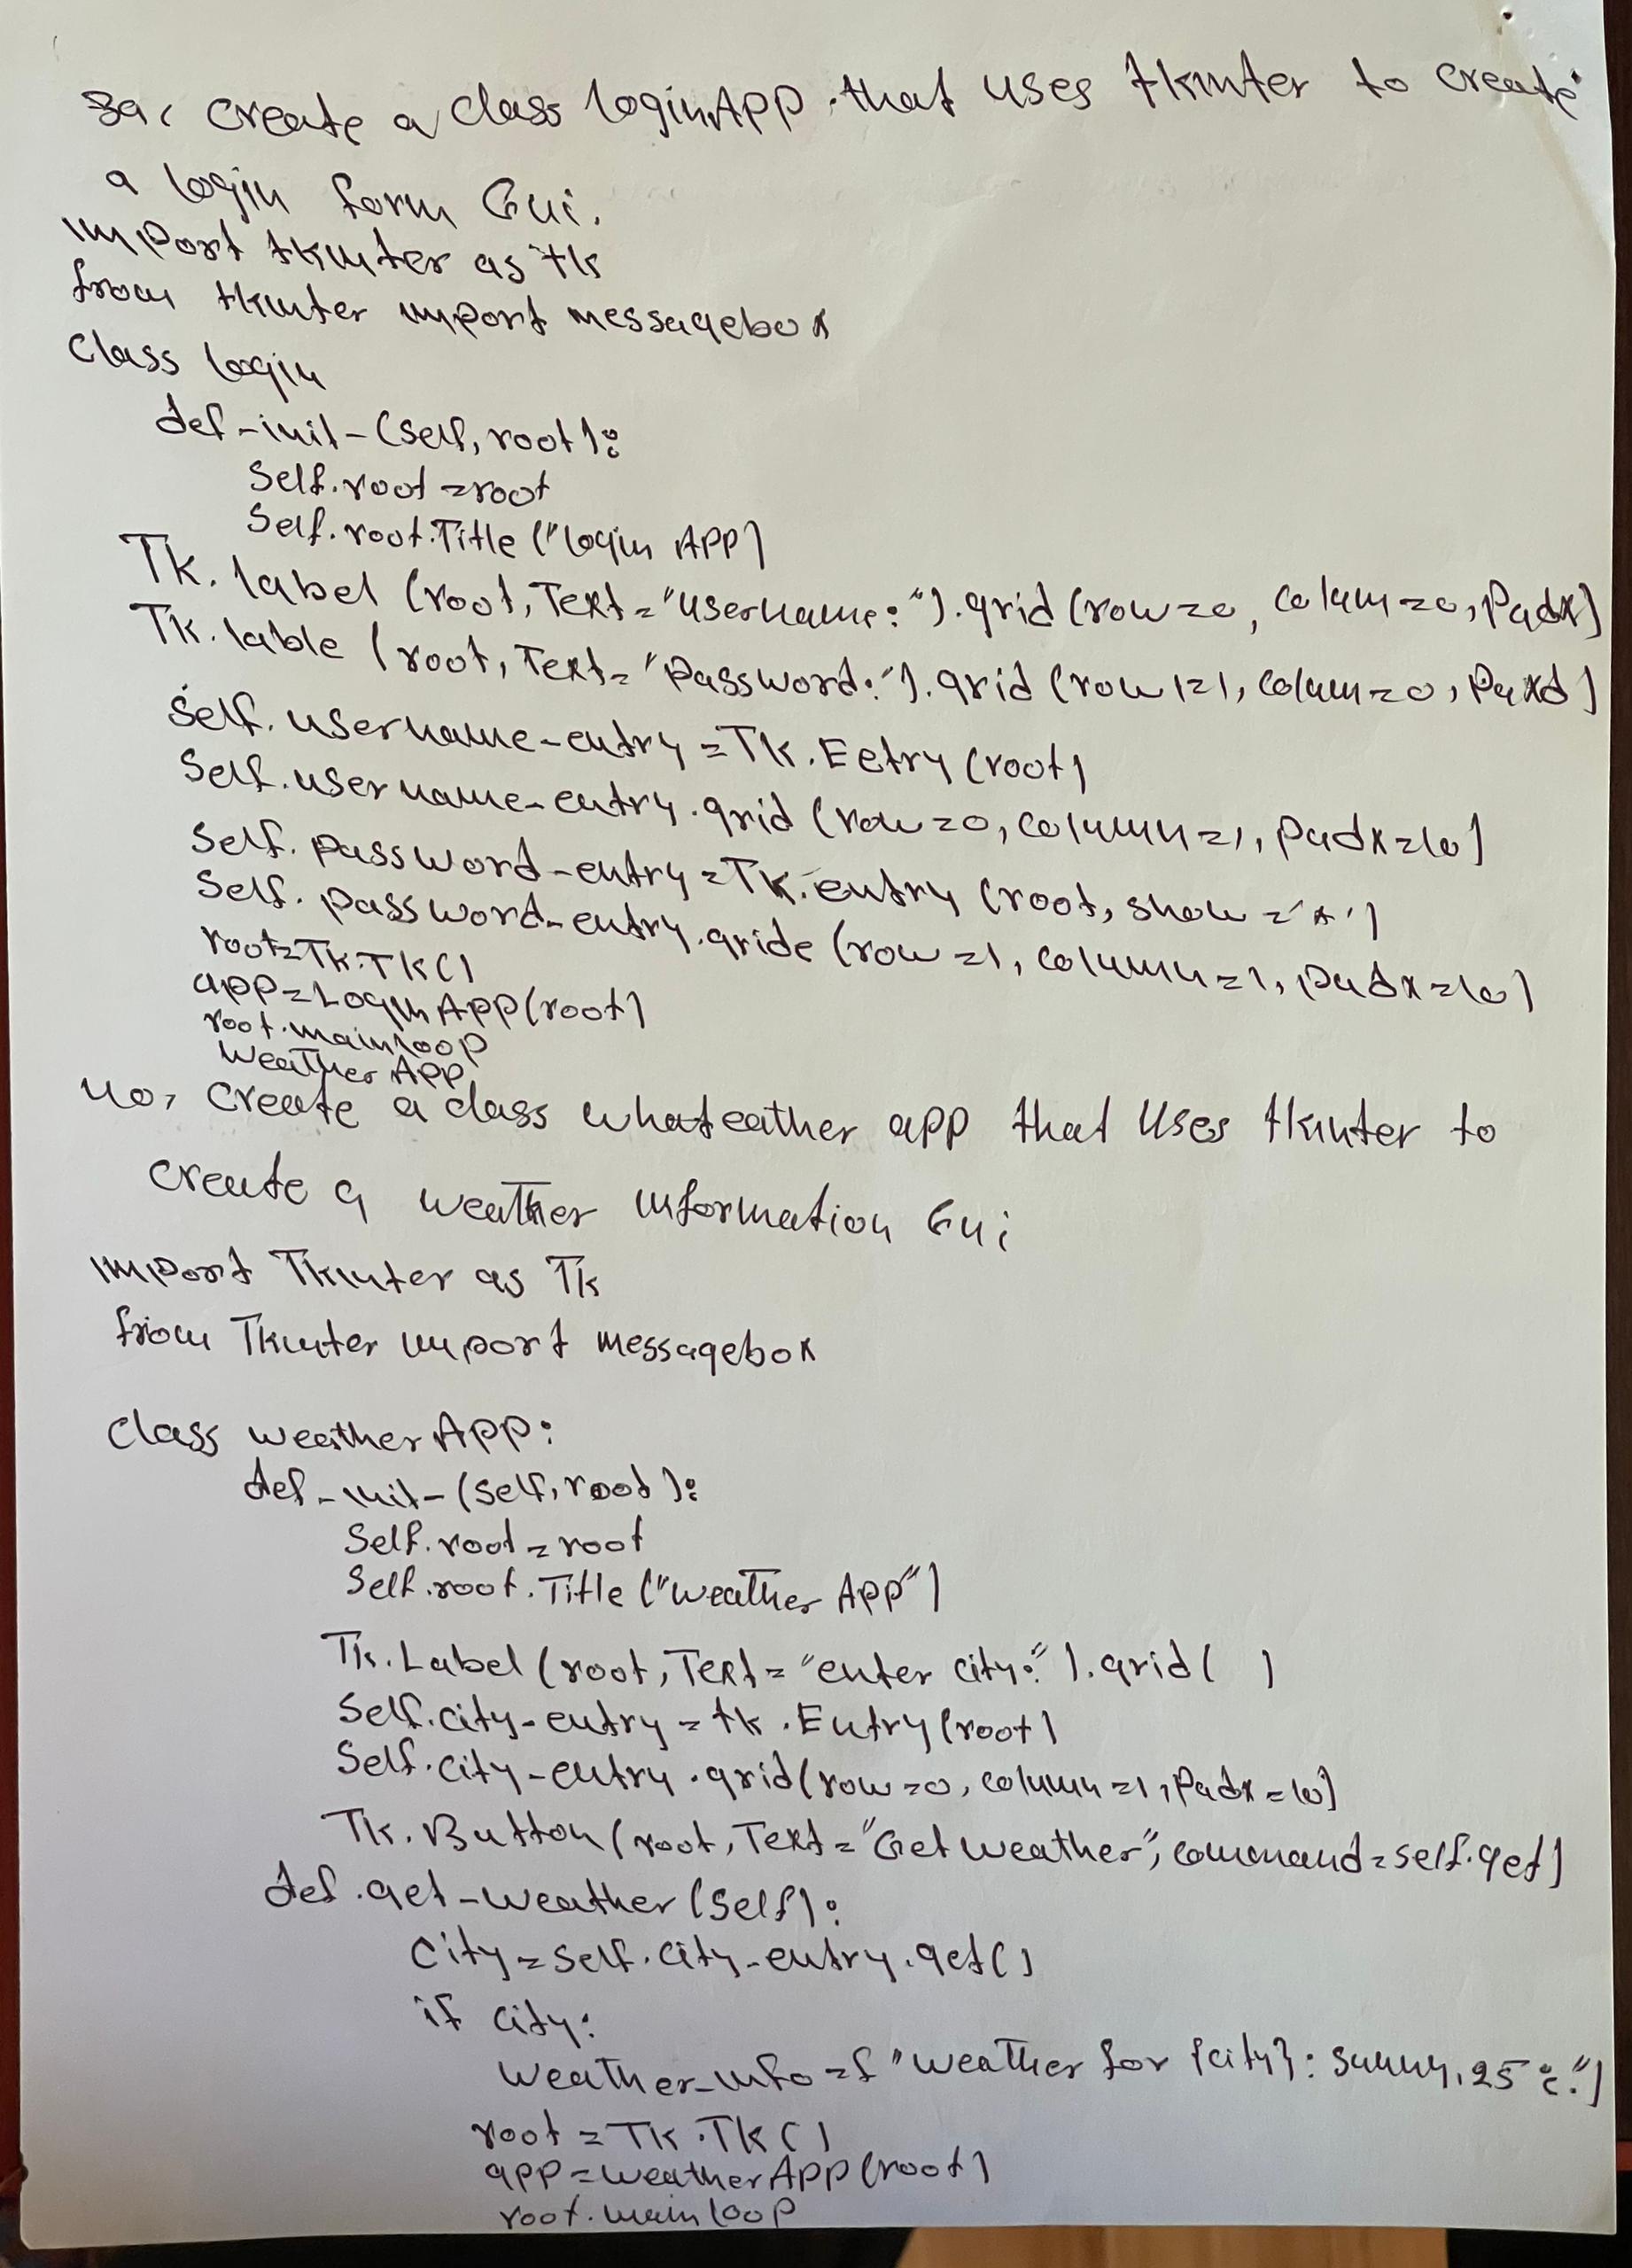 39. Create a class loginApp that uses tkinter to create
a login form Gui.
import tkinter as tk
from tkinter import messagebox
Class login
def-init-(self, root):
Self.root=root
Self.root.Title ("login APP)
Tk. label (root, Text="username:").grid (row=0, colum=0, Padx)
Tk. lable (root, Text="Password:").grid (row 1=1, colum=0, Paxd)
Self. username-entry = Tk. Eetry (root)
Self. username-entry.grid (row=0, column=1, padx=10)
Self. password-entry=Tk. entry (root, show='*')
Self. password-entry.gride (row=1, column=1, padx=10)
root=Tk.TK()
app=LoginApp(root)
root.mainloop
Weather APP
40, Create a class whateather app that Uses tkinter to
create a weather information Gui
import Tkinter as Tk
from Tkinter import messagebox
Class weatherApp:
def-init-(self, root):
Self.root=root
Self.root.Title ("weather App")
Tk.Label (root, Text="enter city:").grid( )
Self.city-entry = tk.Entry(root)
Self.city-entry.grid(row=0, column=1, Padx=10)
Tk. Button (root, Text="Get weather", command=self.get)
def.get-weather (self):
City=self.city-entry.get()
if city:
weather-info=f "weather for {city}: sunny, 25°c.")
root = TK.TK()
app=weatherApp(root)
root.mainloop